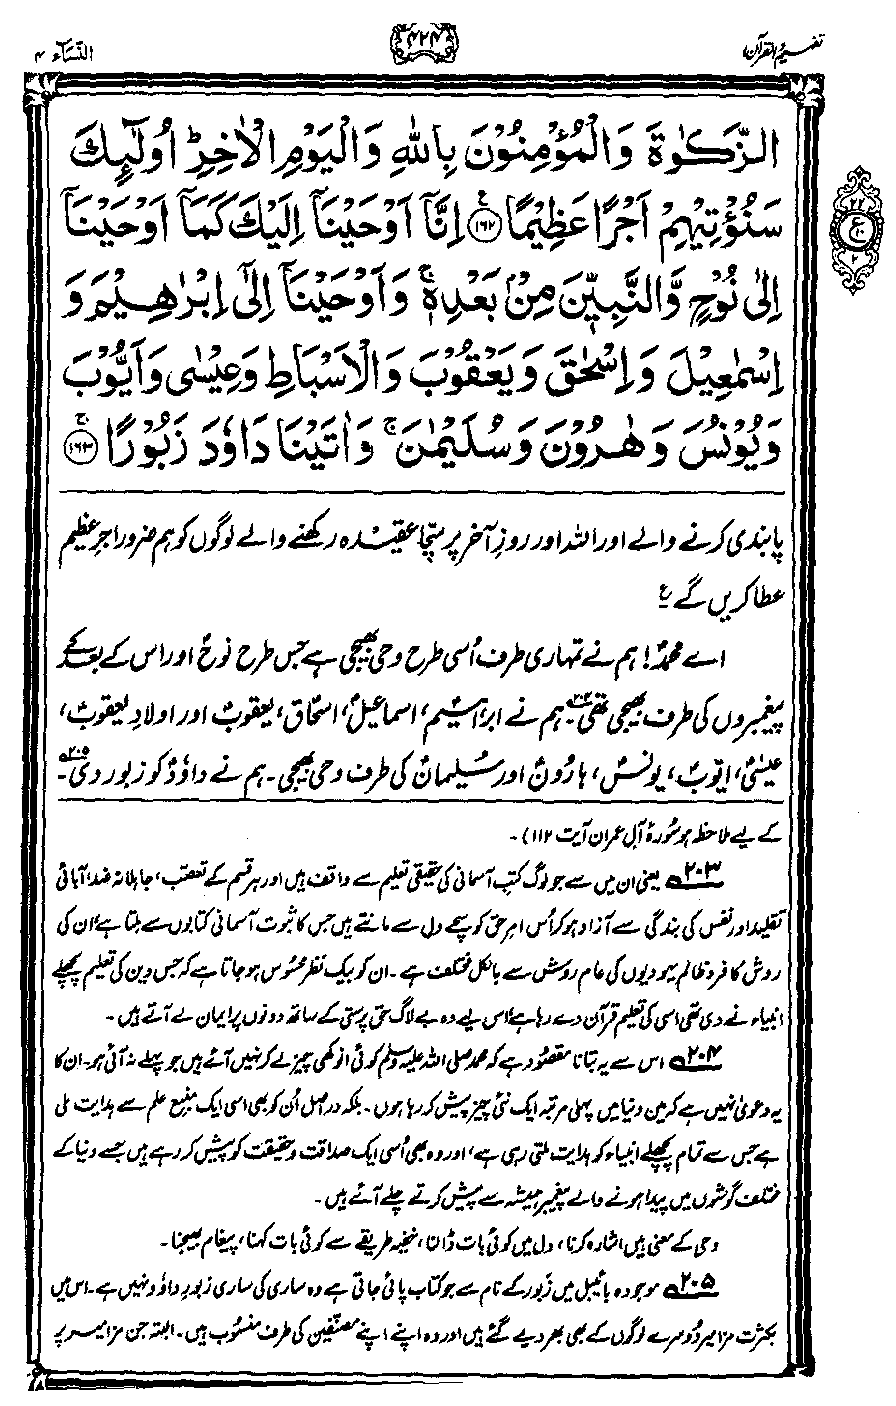 تفہیم القرآن
۴۲۴
النسآء ۴
الزَّكٰوةَ وَالْمُؤْمِنُوْنَ بِاللّٰهِ وَالْيَوْمِ الْاٰخِرِ ؕ اُولٰٓئِكَ
سَنُؤْتِيْهِمْ اَجْرًا عَظِيْمًا ﴿۱۶۲﴾ ع اِنَّاۤ اَوْحَيْنَاۤ اِلَيْكَ كَمَاۤ اَوْحَيْنَاۤ
اِلٰى نُوْحٍ وَّالنَّبِيّٖنَ مِنْۢ بَعْدِهٖ ۚ وَاَوْحَيْنَاۤ اِلٰۤى اِبْرٰهِيْمَ وَ
اِسْمٰعِيْلَ وَاِسْحٰقَ وَيَعْقُوْبَ وَالْاَسْبَاطِ وَعِيْسٰى وَاَيُّوْبَ
وَيُوْنُسَ وَهٰرُوْنَ وَسُلَيْمٰنَ ۚ وَاٰتَيْنَا دَاوٗدَ زَبُوْرًا ۚ ﴿۱۶۳﴾
۲۲
ع
۲
پابندی کرنے والے اور اللہ اور روزِ آخر پر سچا عقیدہ رکھنے والے لوگوں کو ہم ضرور اجرِ عظیم
عطا کریں گے ؏
اے محمدؐ! ہم نے تمہاری طرف اُسی طرح وحی بھیجی ہے جس طرح نوحؑ اور اس کے بعد کے
پیغمبروں کی طرف بھیجی تھی۲۰۴۔ ہم نے ابراہیمؑ، اسماعیلؑ، اسحاقؑ، یعقوبؑ اور اولادِ یعقوبؑ،
عیسیٰؑ، ایوبؑ، یونسؑ، ہارونؑ اور سلیمانؑ کی طرف وحی بھیجی۔ ہم نے داؤدؑ کو زبور دی۲۰۵۔
کے لیے ملاحظہ ہو سورۂ آل عمران آیت ۱۱۲)۔
۲۰۳ یعنی ان میں سے جو لوگ کتبِ آسمانی کی حقیقی تعلیم سے واقف ہیں اور ہر قسم کے تعصب، جاہلانہ ضد، آبائی
تقلید اور نفس کی بندگی سے آزاد ہو کر اُس امرِ حق کو سچے دل سے مانتے ہیں جس کا ثبوت آسمانی کتابوں سے ملتا ہے، ان کی
روش کافر و ظالم یہودیوں کی عام روش سے بالکل مختلف ہے۔ ان کو بیک نظر محسوس ہو جاتا ہے کہ جس دین کی تعلیم پچھلے
انبیاء نے دی تھی اسی کی تعلیم قرآن دے رہا ہے، اس لیے وہ بے لاگ حق پرستی کے ساتھ دونوں پر ایمان لے آتے ہیں۔
۲۰۴ اس سے یہ بتانا مقصود ہے کہ محمد صلی اللہ علیہ وسلم کوئی انوکھی چیز لے کر نہیں آئے ہیں جو پہلے نہ آئی ہو۔ ان کا
یہ دعویٰ نہیں ہے کہ میں دنیا میں پہلی مرتبہ ایک نئی چیز پیش کر رہا ہوں۔ بلکہ دراصل اُن کو بھی اسی ایک منبعِ علم سے ہدایت ملی
ہے جس سے تمام پچھلے انبیاء کو ہدایت ملتی رہی ہے، اور وہ بھی اُسی ایک صداقت و حقیقت کو پیش کر رہے ہیں جسے دنیا کے
مختلف گوشوں میں پیدا ہونے والے پیغمبر ہمیشہ سے پیش کرتے چلے آئے ہیں۔
وحی کے معنی ہیں اشارہ کرنا، دل میں کوئی بات ڈالنا، خفیہ طریقے سے کوئی بات کہنا، پیغام بھیجنا۔
۲۰۵ موجودہ بائیبل میں زبور کے نام سے جو کتاب پائی جاتی ہے وہ ساری کی ساری زبورِ داؤد نہیں ہے۔ اس میں
بکثرت مزامیر دُوسرے لوگوں کے بھی بھر دیے گئے ہیں اور وہ اپنے اپنے مصنّفین کی طرف منسُوب ہیں۔ البتہ جن مزامیر پر